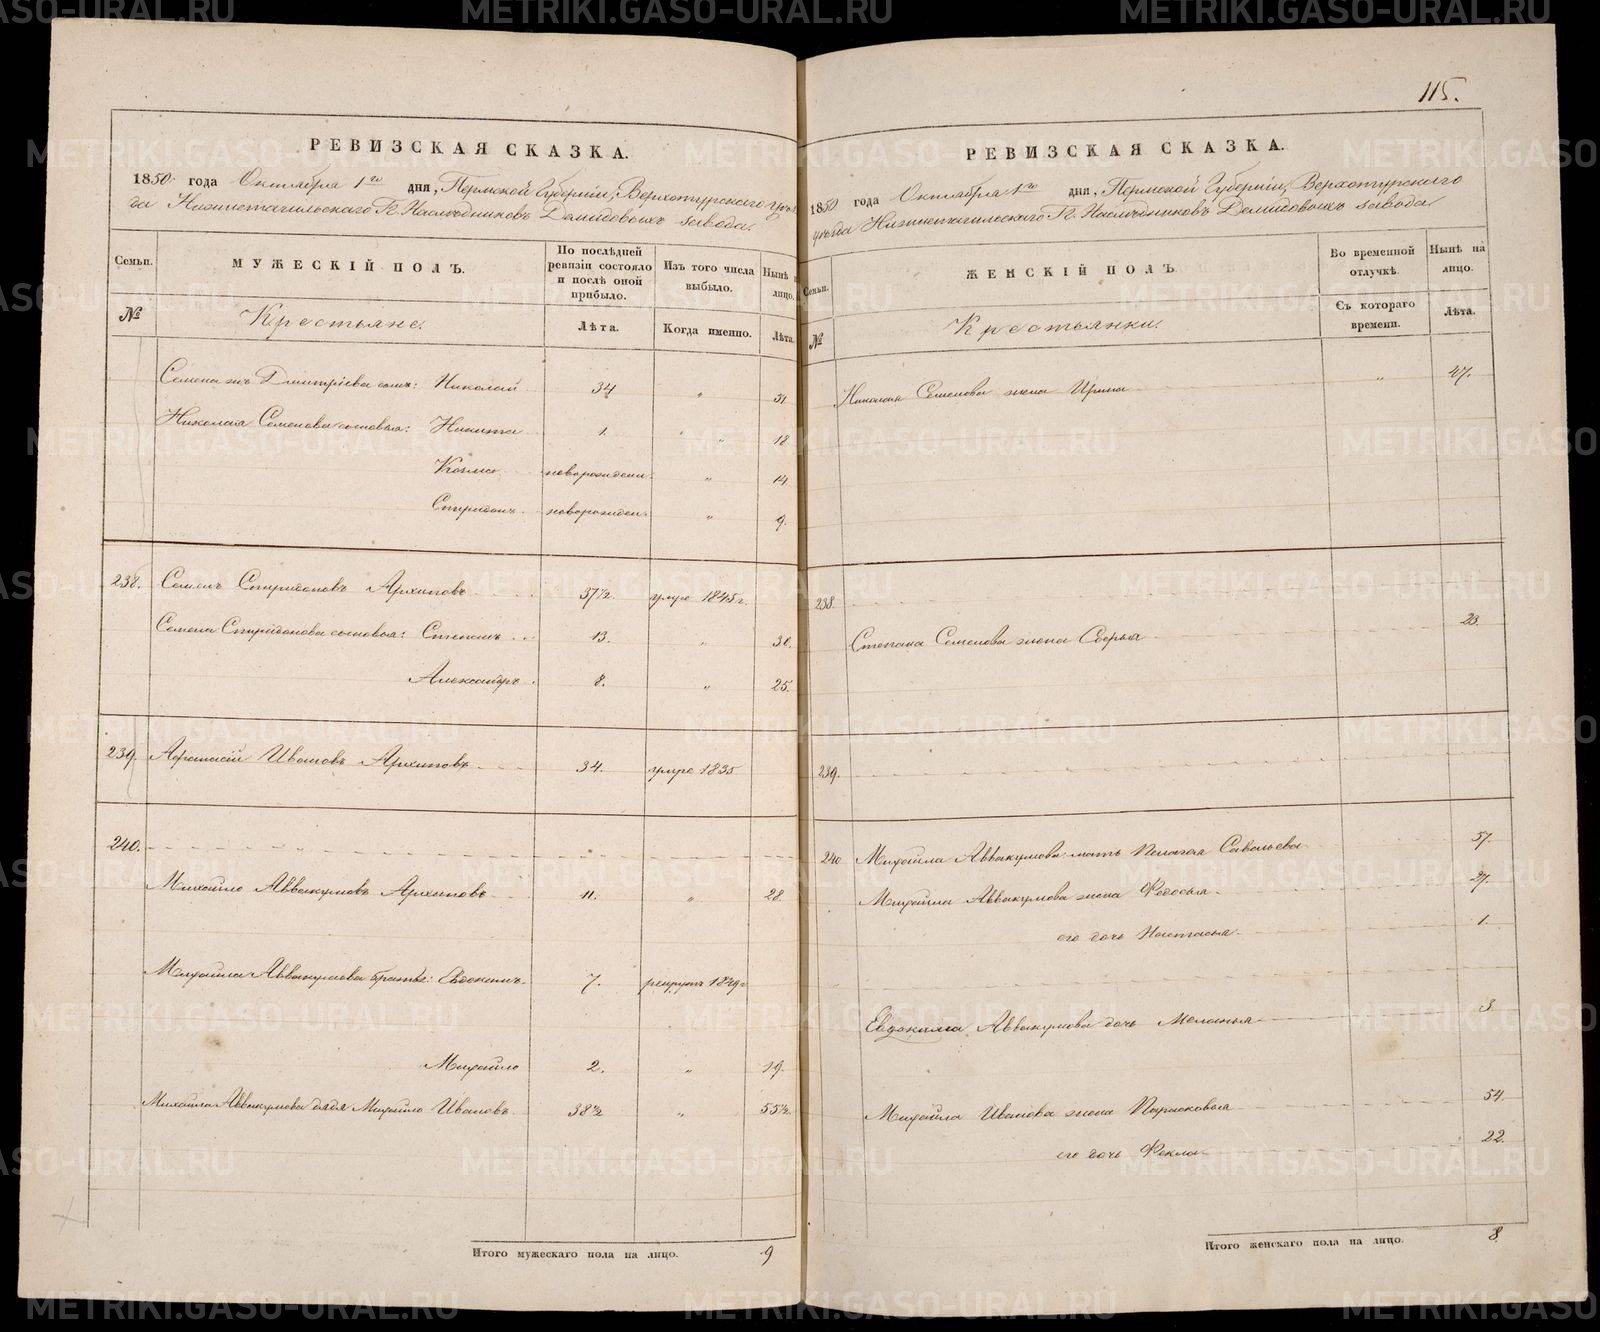 РЕВИЗСКАЯ СКАЗКА.
1850 года Октября 1го дня, Пермской Губернiи, Верхотурскаго уѣз
да Нижнетагильскаго Г. Наслѣдниковъ Демидовыхъ завода.
Семьи.
МУЖЕСКIЙ ПОЛЪ.
По послѣдней ревизiи состояло и послѣ оной прибыло.
Изъ того числа выбыло.
Нынѣ
лицо.
№
Крестьяне.
Лѣта.
Когда именно.
Лѣта.
Семена Дмитрiева сынъ: Николай 34 " 51
Николая Семенова сыновья: Никита 1. " 18
Козма новорожден. " 14
Спиридонъ новорожден. " 9.
238. Семенъ Спиридоновъ Архиповъ 37½ умре 1845 г.
Семена Спиридонова сыновья: Степанъ 13. " 30.
Александръ 8. " 25.
239. Афанасiй Ивановъ Архиповъ 34. умре 1835
240.
Михайло Аввакумовъ Архиповъ 11. " 28.
Михайла Аввакумова братья: Евдокимъ 7. рекрутъ 1849 г
Михайло 2. " 19.
Михайла Аввакумова дядя Михайло Ивановъ 38½ " 55½
Итого мужескаго пола на лицо. 9
115.
РЕВИЗСКАЯ СКАЗКА.
1850 года Октября 1го дня, Пермской Губернiи, Верхотурскаго
уѣзда Нижнетагильскаго Г. Наслѣдниковъ Демидовыхъ завода.
Семьи.
ЖЕНСКIЙ ПОЛЪ
Во временной отлучкѣ.
Нынѣ на лицо.
№
Крестьянки.
Съ котораго времени.
Лѣта.
Николая Семенова жена Ирина " 47.
238.
Степана Семенова жена Софья 23.
239.
240 Михайла Аввакумова мать Пелагея Савельева 57.
Михайла Аввакумова жена Федосья 27.
его дочь Настасья 1.
Евдокима Аввакумова дочь Меланья 3
Михайла Иванова жена Парасковья 54.
его дочь Фекла 22.
Итого женскаго пола на лицо. 8.
METRIKI.GASO-URAL.RU